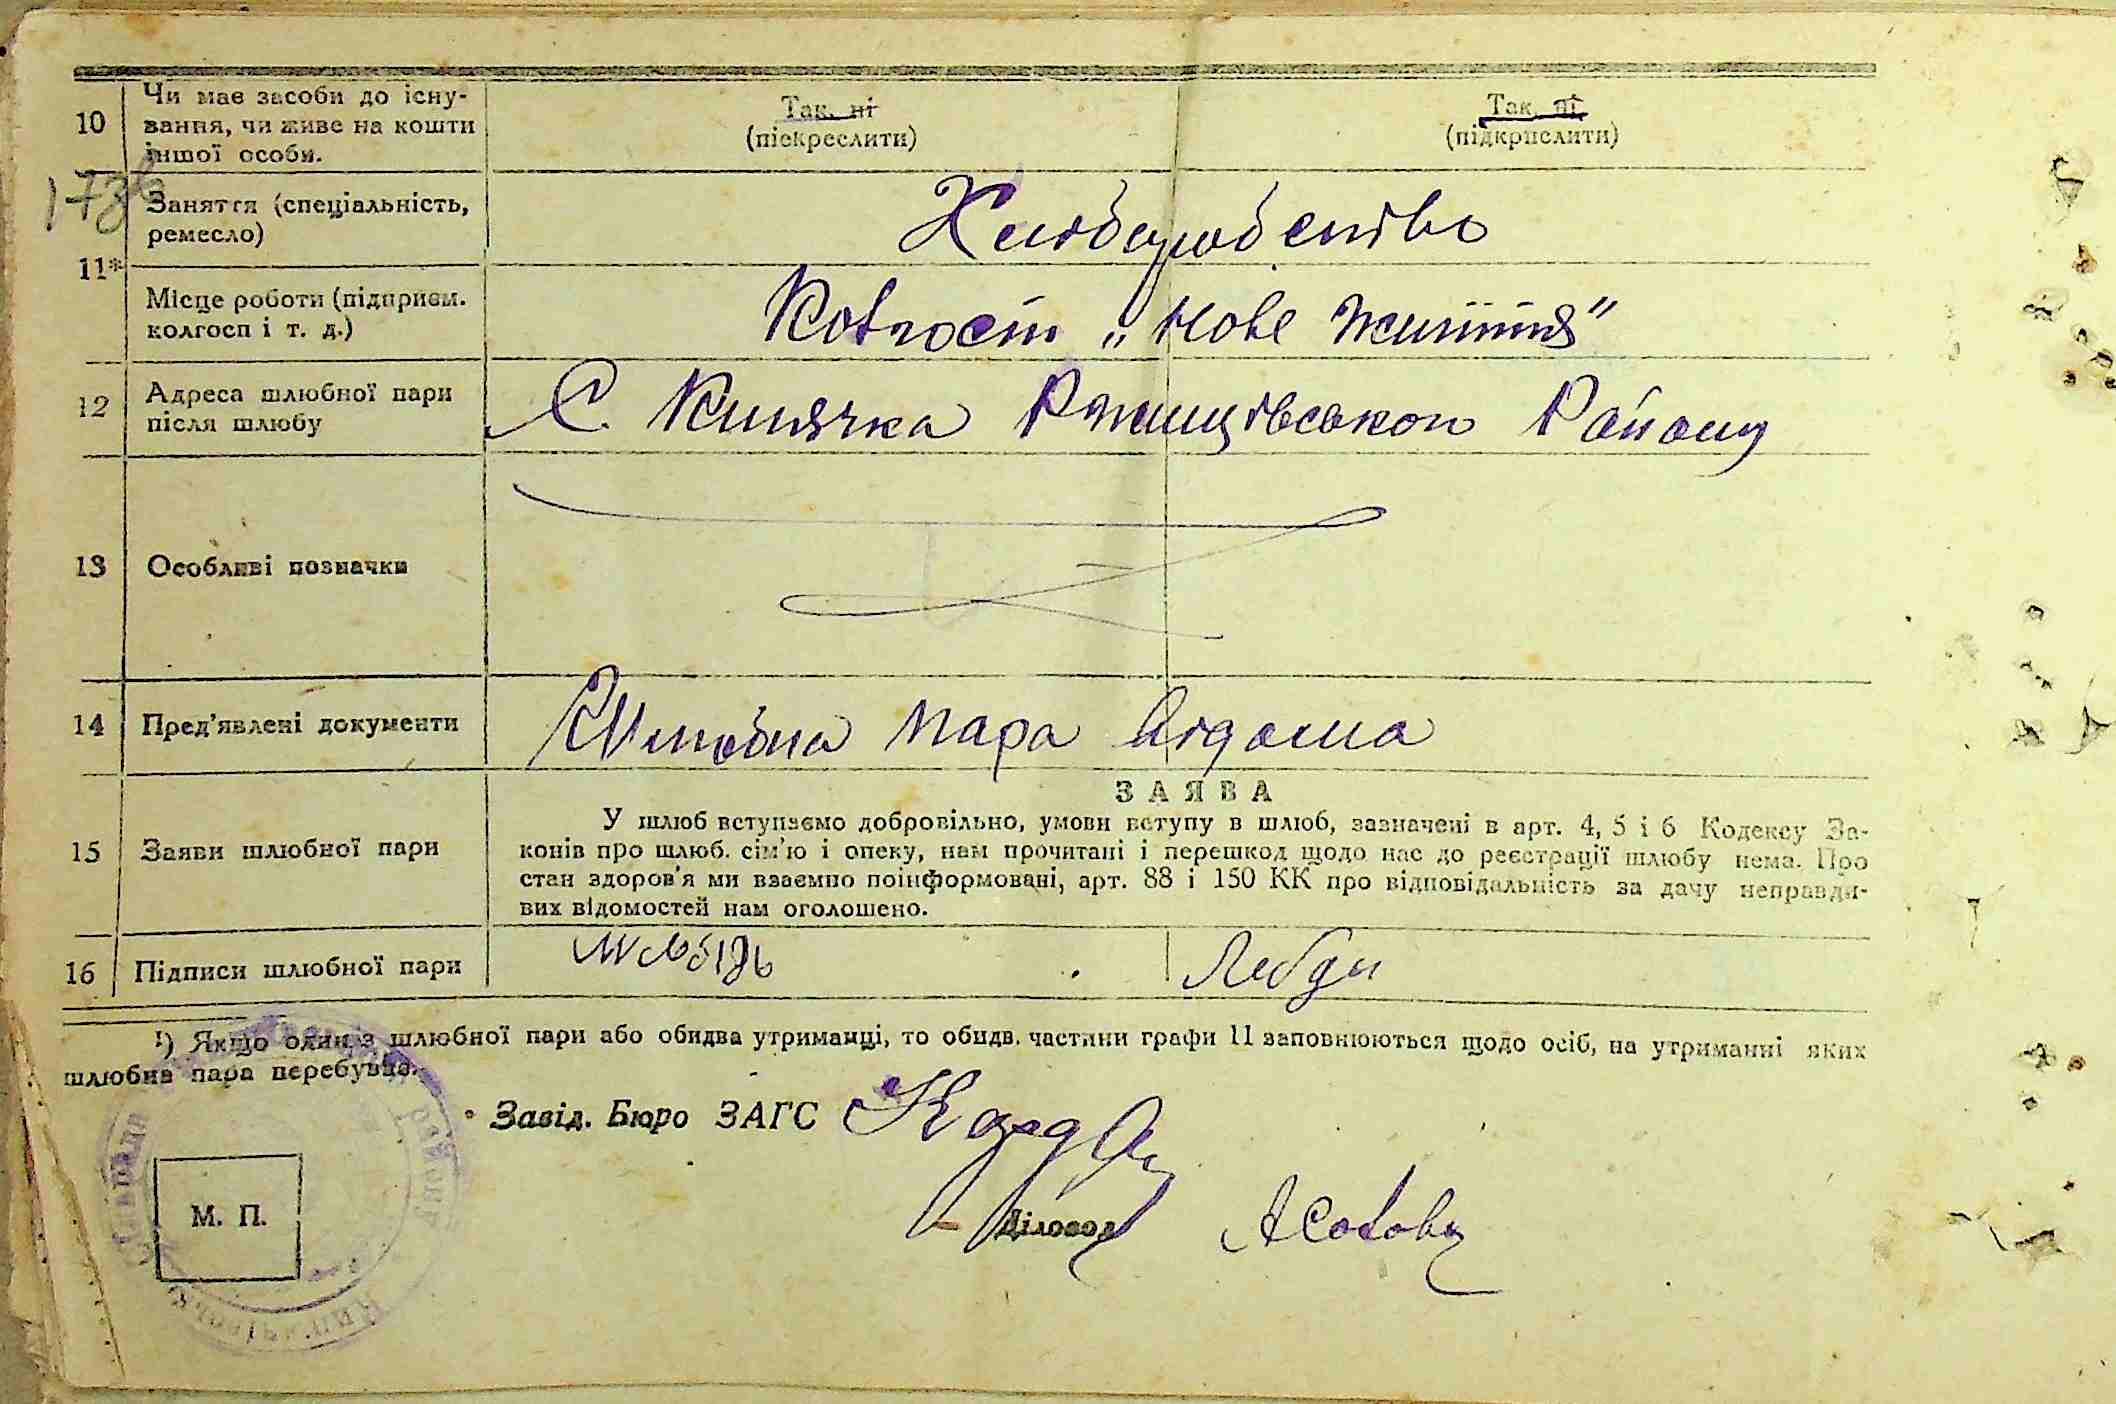 10 Чи має засоби до існу-
вання, чи живе на кошти
іншої особи.
Так, ні
(піскреслити)
Так, ні
(підкрислити)
173б
11* Заняття (спеціальність,
ремесло)
Хліборобство
Місце роботи (підприєм.
колгосп і т. д.)
Ковгосп „Нове життя"
12 Адреса шлюбної пари
після шлюбу
С. Кип'ячка Ржищівского Району
13 Особливі позначки
14 Пред'явлені документи
Шлюбна пара відома
15 Заяви шлюбної пари
ЗАЯВА
У шлюб вступаємо добровільно, умови вступу в шлюб, зазначені в арт. 4, 5 і 6 Кодексу За-
конів про шлюб. сім'ю і опеку, нам прочитані і перешкод щодо нас до реєстрації шлюбу нема. Про
стан здоров'я ми взаємно поінформовані, арт. 88 і 150 КК про відповідальність за дачу неправди-
вих відомостей нам оголошено.
16 Підписи шлюбної пари
¹) Якщо один з шлюбної пари або обидва утриманці, то обидв. частини графи 11 заповнюються щодо осіб, на утриманні яких
шлюбна пара перебуває.
Завід. Бюро ЗАГС
М. П.
Діловод